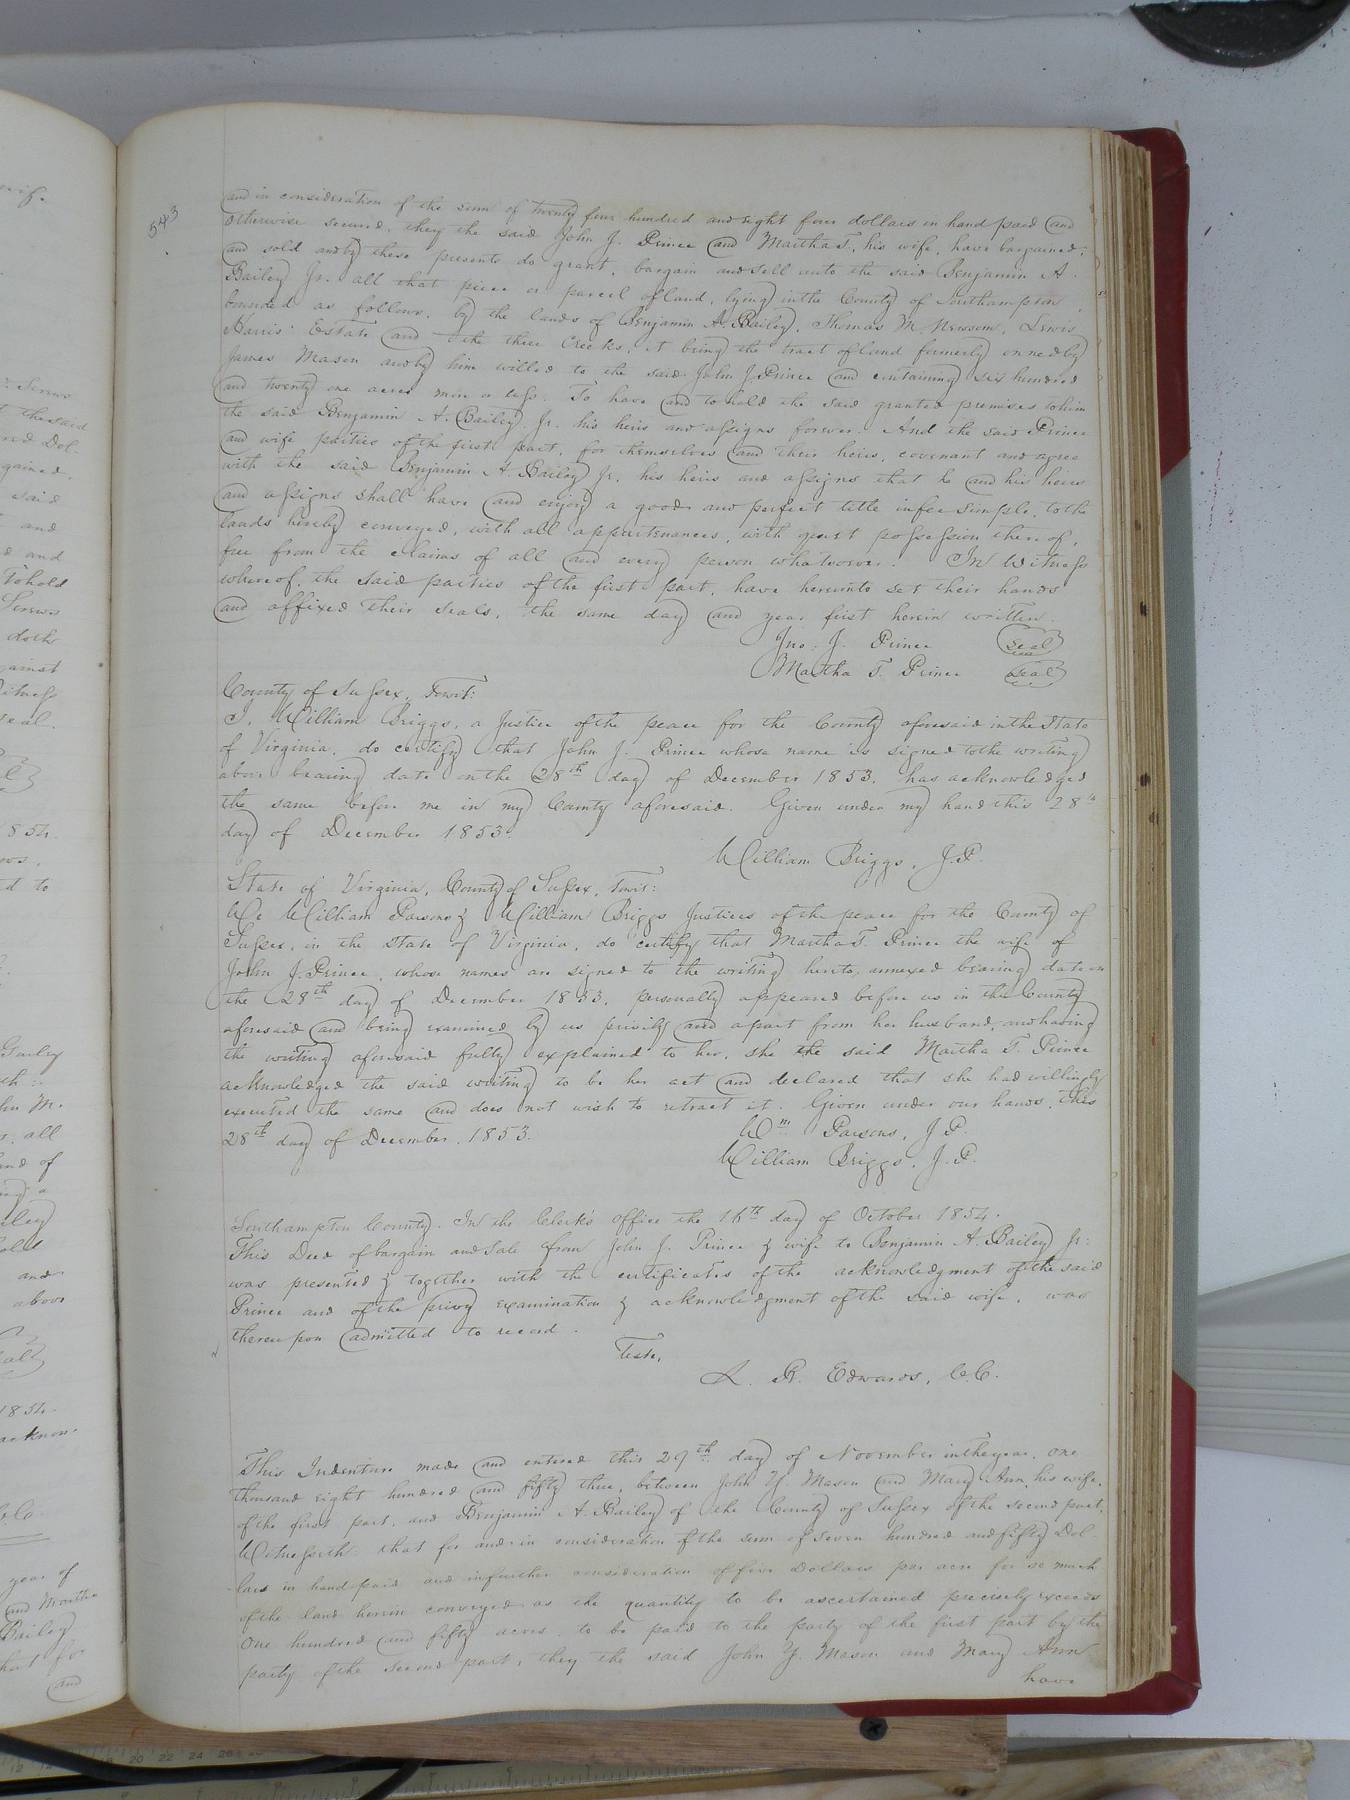 543
and in consideration of the sum of twenty four hundred and eight four dollars in hand paid and
otherwise secured, they the said John J. Prince and Martha T. his wife, have bargained,
and sold and by these presents do grant, bargain and sell unto the said Benjamin A.
Bailey Jr. all that piece or parcel of land, lying in the County of Southampton,
bounded as follows, by the lands of Benjamin A. Bailey, Thomas M. Newsom, Lewis
Harris' Estate and the three Creeks, it being the tract of land formerly owned by
James Mason and by him willed to the said John J. Prince and containing six hundred
and twenty one acres more or less. To have and to hold the said granted premises to him
the said Benjamin A. Bailey Jr. his heirs and assigns forever. And the said Prince
and wife parties of the first part, for themselves and their heirs, covenant and agree
with the said Benjamin A Bailey Jr. his heirs and assigns that he and his heirs
and assigns shall have and enjoy a good and perfect title in fee simple, to the
lands hereby conveyed, with all appurtenances, with quiet possession thereof,
free from the claims of all and every person whatsoever. In Witness
whereof, the said parties of the first part, have hereunto set their hands
and affixed their seals, the same day and year first herein written.
Jno. J. Prince seal
Martha T. Prince seal
County of Sussex, Towit:
I, William Briggs, a Justice of the peace for the County aforesaid in the State
of Virginia, do certify that John J. Prince whose name is signed to the writing
above bearing date on the 28th day of December 1853, has acknowledged
the same before me in my County aforesaid. Given under my hand this 28th
day of December 1853.
William Briggs, J.P.
State of Virginia, County of Sussex, Towit:
We William Parsons & William Briggs Justices of the peace for the County of
Sussex, in the State of Virginia, do certify that Martha T. Prince the wife of
John J. Prince, whose names are signed to the writing hereto annexed bearing date on
the 28th day of December 1853, personally appeared before us in the County
aforesaid and being examined by us privily and apart from her husband, and having
the writing aforesaid fully explained to her, she the said Martha T. Prince
acknowledged the said writing to be her act and declared that she had willingly
executed the same and does not wish to retract it. Given under our hands, this
28th day of December, 1853.
Wm Parsons, J P.
William Briggs, J. P.
Southampton County. In the Clerk's office the 16th day of October 1854.
This Deed of bargain and Sale from John J. Prince & wife to Benjamin A. Bailey Jr:
was presented & together with the certificates of the acknowledgment of the said
Prince and of the privy examination & acknowledgment of the said wife, was
thereupon admitted to record.
Teste,
L. R. Edwards, C.C.
This Indenture made and entered this 29th day of November in the year, one
thousand eight hundred and fifty three, between John Y. Mason and Mary Ann, his wife,
of the first part, and Benjamin A. Bailey of the County of Sussex of the second part,
Witnesseth that for and in consideration of the sum of seven hundred and fifty Dol-
lars in hand paid and in further consideration of five Dollars per acre for so much
of the land herein conveyed as the quantity to be ascertained precisely exceeds
one hundred and fifty acres, to be paid to the party of the first part by the
party of the second part, they the said John Y. Mason and Mary Ann
have